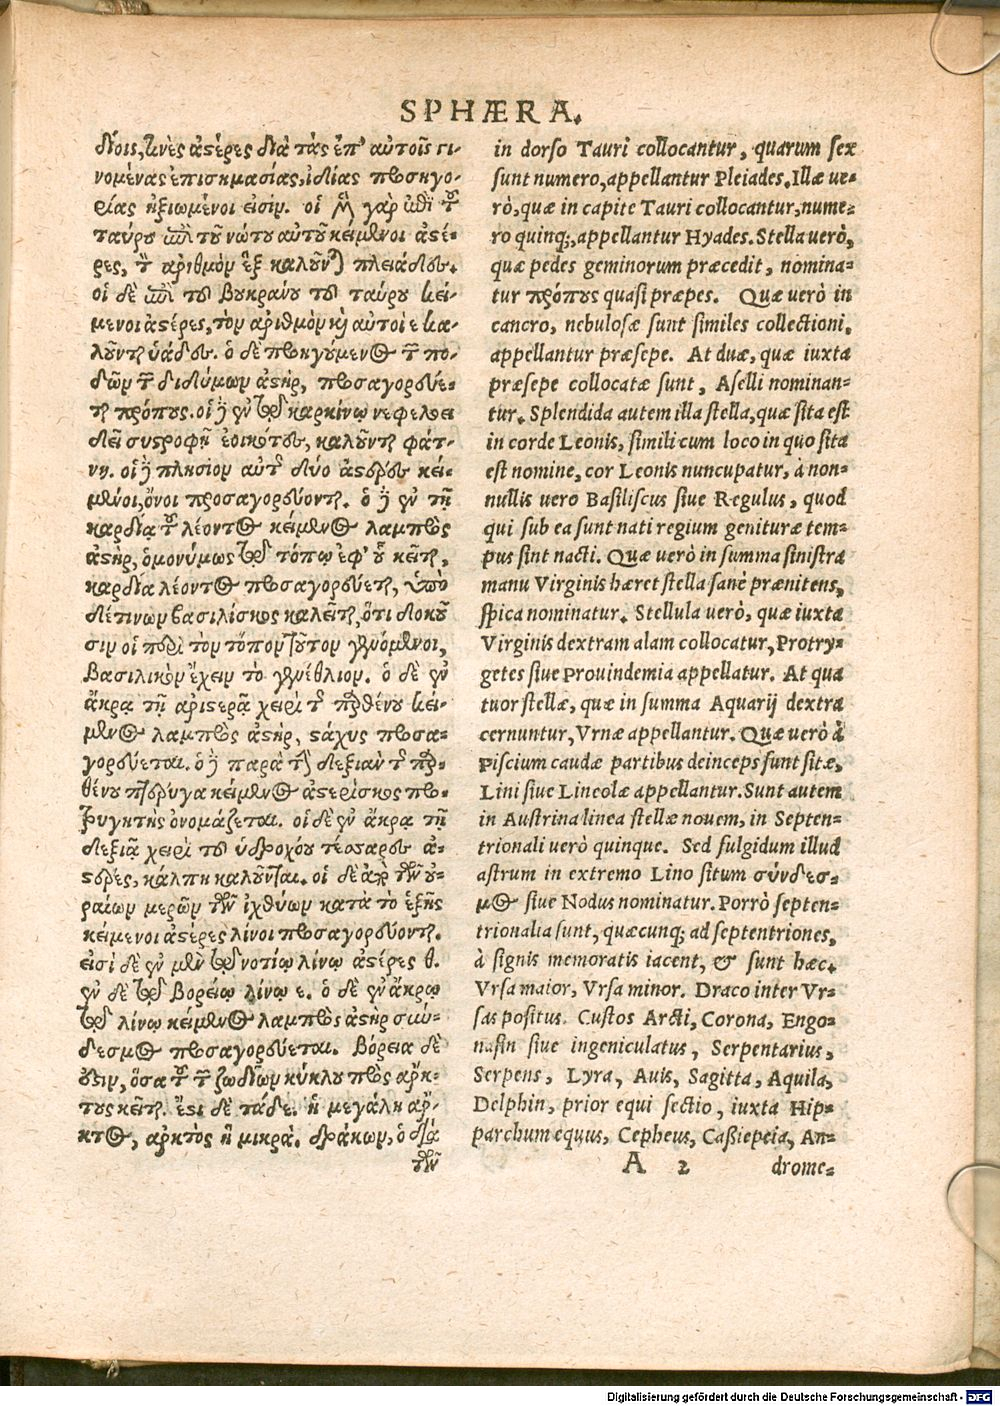 SPHÆRA.
δίοις, τινὲς ἀστέρες διὰ τὰς ἐπ' αὐτοῖς γι-
νομένας ἐπισημασίας, ἰδίας προσηγο-
ρίας ἠξιωμένοι εἰσίν. οἱ μὲν γὰρ ἐπὶ τοῦ
ταύρου ἐπὶ τοῦ νώτου αὐτοῦ κείμενοι ἀστέ-
ρες, τὸν ἀριθμὸν ἓξ καλοῦνται πλειάδες.
οἱ δὲ ἐπὶ τοῦ βουκράνου τοῦ ταύρου κεί-
μενοι ἀστέρες, τὸν ἀριθμὸν καὶ αὐτοὶ ε κα-
λοῦνται ὑάδες. ὁ δὲ προηγούμενος τῶν πο-
δῶν τῶν διδύμων ἀστὴρ, προσαγορεύε-
ται πρόπους. οἱ δὲ ἐν τῷ καρκίνῳ νεφελοει
δεῖ συστροφῇ ἐοικότες, καλοῦνται φάτ-
νη. οἱ δὲ πλησίον αὐτῆς δύο ἀστέρες κεί-
μενοι, ὄνοι προσαγορεύονται. ὁ δὲ ἐν τῇ
καρδίᾳ τοῦ λέοντος κείμενος λαμπρὸς
ἀστὴρ, ὁμονύμως τῷ τόπῳ ἐφ' οὗ κεῖται,
καρδία λέοντος προσαγορεύεται, ὑπὸ
δέ τινων βασιλίσκος καλεῖται, ὅτι δοκοῦ
σιν οἱ περὶ τὸν τόπον τοῦτον γενόμενοι,
βασιλικὸν ἔχειν τὸ γενέθλιον. ὁ δὲ ἐν
ἄκρᾳ τῇ ἀριστερᾷ χειρὶ τῆς παρθένου κεί-
μενος λαμπρὸς ἀστὴρ, στάχυς προσα-
γορεύεται. ὁ δὲ παρὰ τὴν δεξιὰν τῆς παρ-
θένου πτέρυγα κείμενος ἀστερίσκος προ-
τρυγητὴς ὀνομάζεται. οἱ δὲ ἐν ἄκρᾳ τῇ
δεξιᾷ χειρὶ τοῦ ὑδροχόου τέσσαρες ἀ-
στέρες, κάλπη καλοῦνται. οἱ δὲ ἀπὸ τῶν οὐ-
ραίων μερῶν τῶν ἰχθύων κατὰ τὸ ἑξῆς
κείμενοι ἀστέρες λίνοι προσαγορεύονται.
εἰσὶ δὲ ἐν μὲν τῷ νοτίῳ λίνῳ ἀστέρες θ.
ἐν δὲ τῷ βορείῳ λίνῳ ε. ὁ δὲ ἐν ἄκρῳ
τῷ λίνῳ κείμενος λαμπρὸς ἀστὴρ σύν-
δεσμος προσαγορεύεται. Βόρεια δέ
ἐστιν, ὅσα τοῦ τῶν ζωδίων κύκλου πρὸς ἄρκ-
τους κεῖται. ἔστι δὲ τάδε. ἡ μεγάλη ἄρ-
κτος, ἄρκτος ἡ μικρὰ. δράκων, ὁ διὰ
τῶν
in dorso Tauri collocantur, quarum sex
sunt numero, appellantur Pleiades. Illæ ue-
rò, quæ in capite Tauri collocantur, nume-
ro quinq;, appellantur Hyades. Stella uerò,
quæ pedes geminorum præcedit, nomina-
tur πρόπους quasi præpes. Quæ uerò in
cancro, nebulosæ sunt similes collectioni,
appellantur præsepe. At duæ, quæ iuxta
præsepe collocatæ sunt, Aselli nominan-
tur. Splendida autem illa stella, quæ sita est
in corde Leonis, simili cum loco in quo sita
est nomine, cor Leonis nuncupatur, à non-
nullis uero Basiliscus siue Regulus, quod
qui sub ea sunt nati regium genituræ tem-
pus sint nacti. Quæ uerò in summa sinistra
manu Virginis hæret stella sanè prænitens,
spica nominatur. Stellula uerò, quæ iuxta
Virginis dextram alam collocatur, Protry-
getes siue Prouindemia appellatur. At qua
tuor stellæ, quæ in summa Aquarij dextra
cernuntur, Vrnæ appellantur. Quæ uerò à
Piscium caudæ partibus deinceps sunt sitæ,
Lini siue Lineolæ appellantur. Sunt autem
in Austrina linea stellæ nouem, in Septen-
trionali uerò quinque. Sed fulgidum illud
astrum in extremo Lino situm σύνδεσ-
μος siue Nodus nominatur. Porrò septen-
trionalia sunt, quæcunq; ad septentriones,
à signis memoratis iacent, & sunt hæc.
Vrsa maior, Vrsa minor. Draco inter Vr-
sas positus. Custos Arcti, Corona, Engo-
nasin siue ingeniculatus, Serpentarius,
Serpens, Lyra, Auis, Sagitta, Aquila,
Delphin, prior equi sectio, iuxta Hip-
parchum equus, Cepheus, Caßiepeia, An-
A 2 drome-
Digitalisierung gefördert durch die Deutsche Forschungsgemeinschaft - DFG